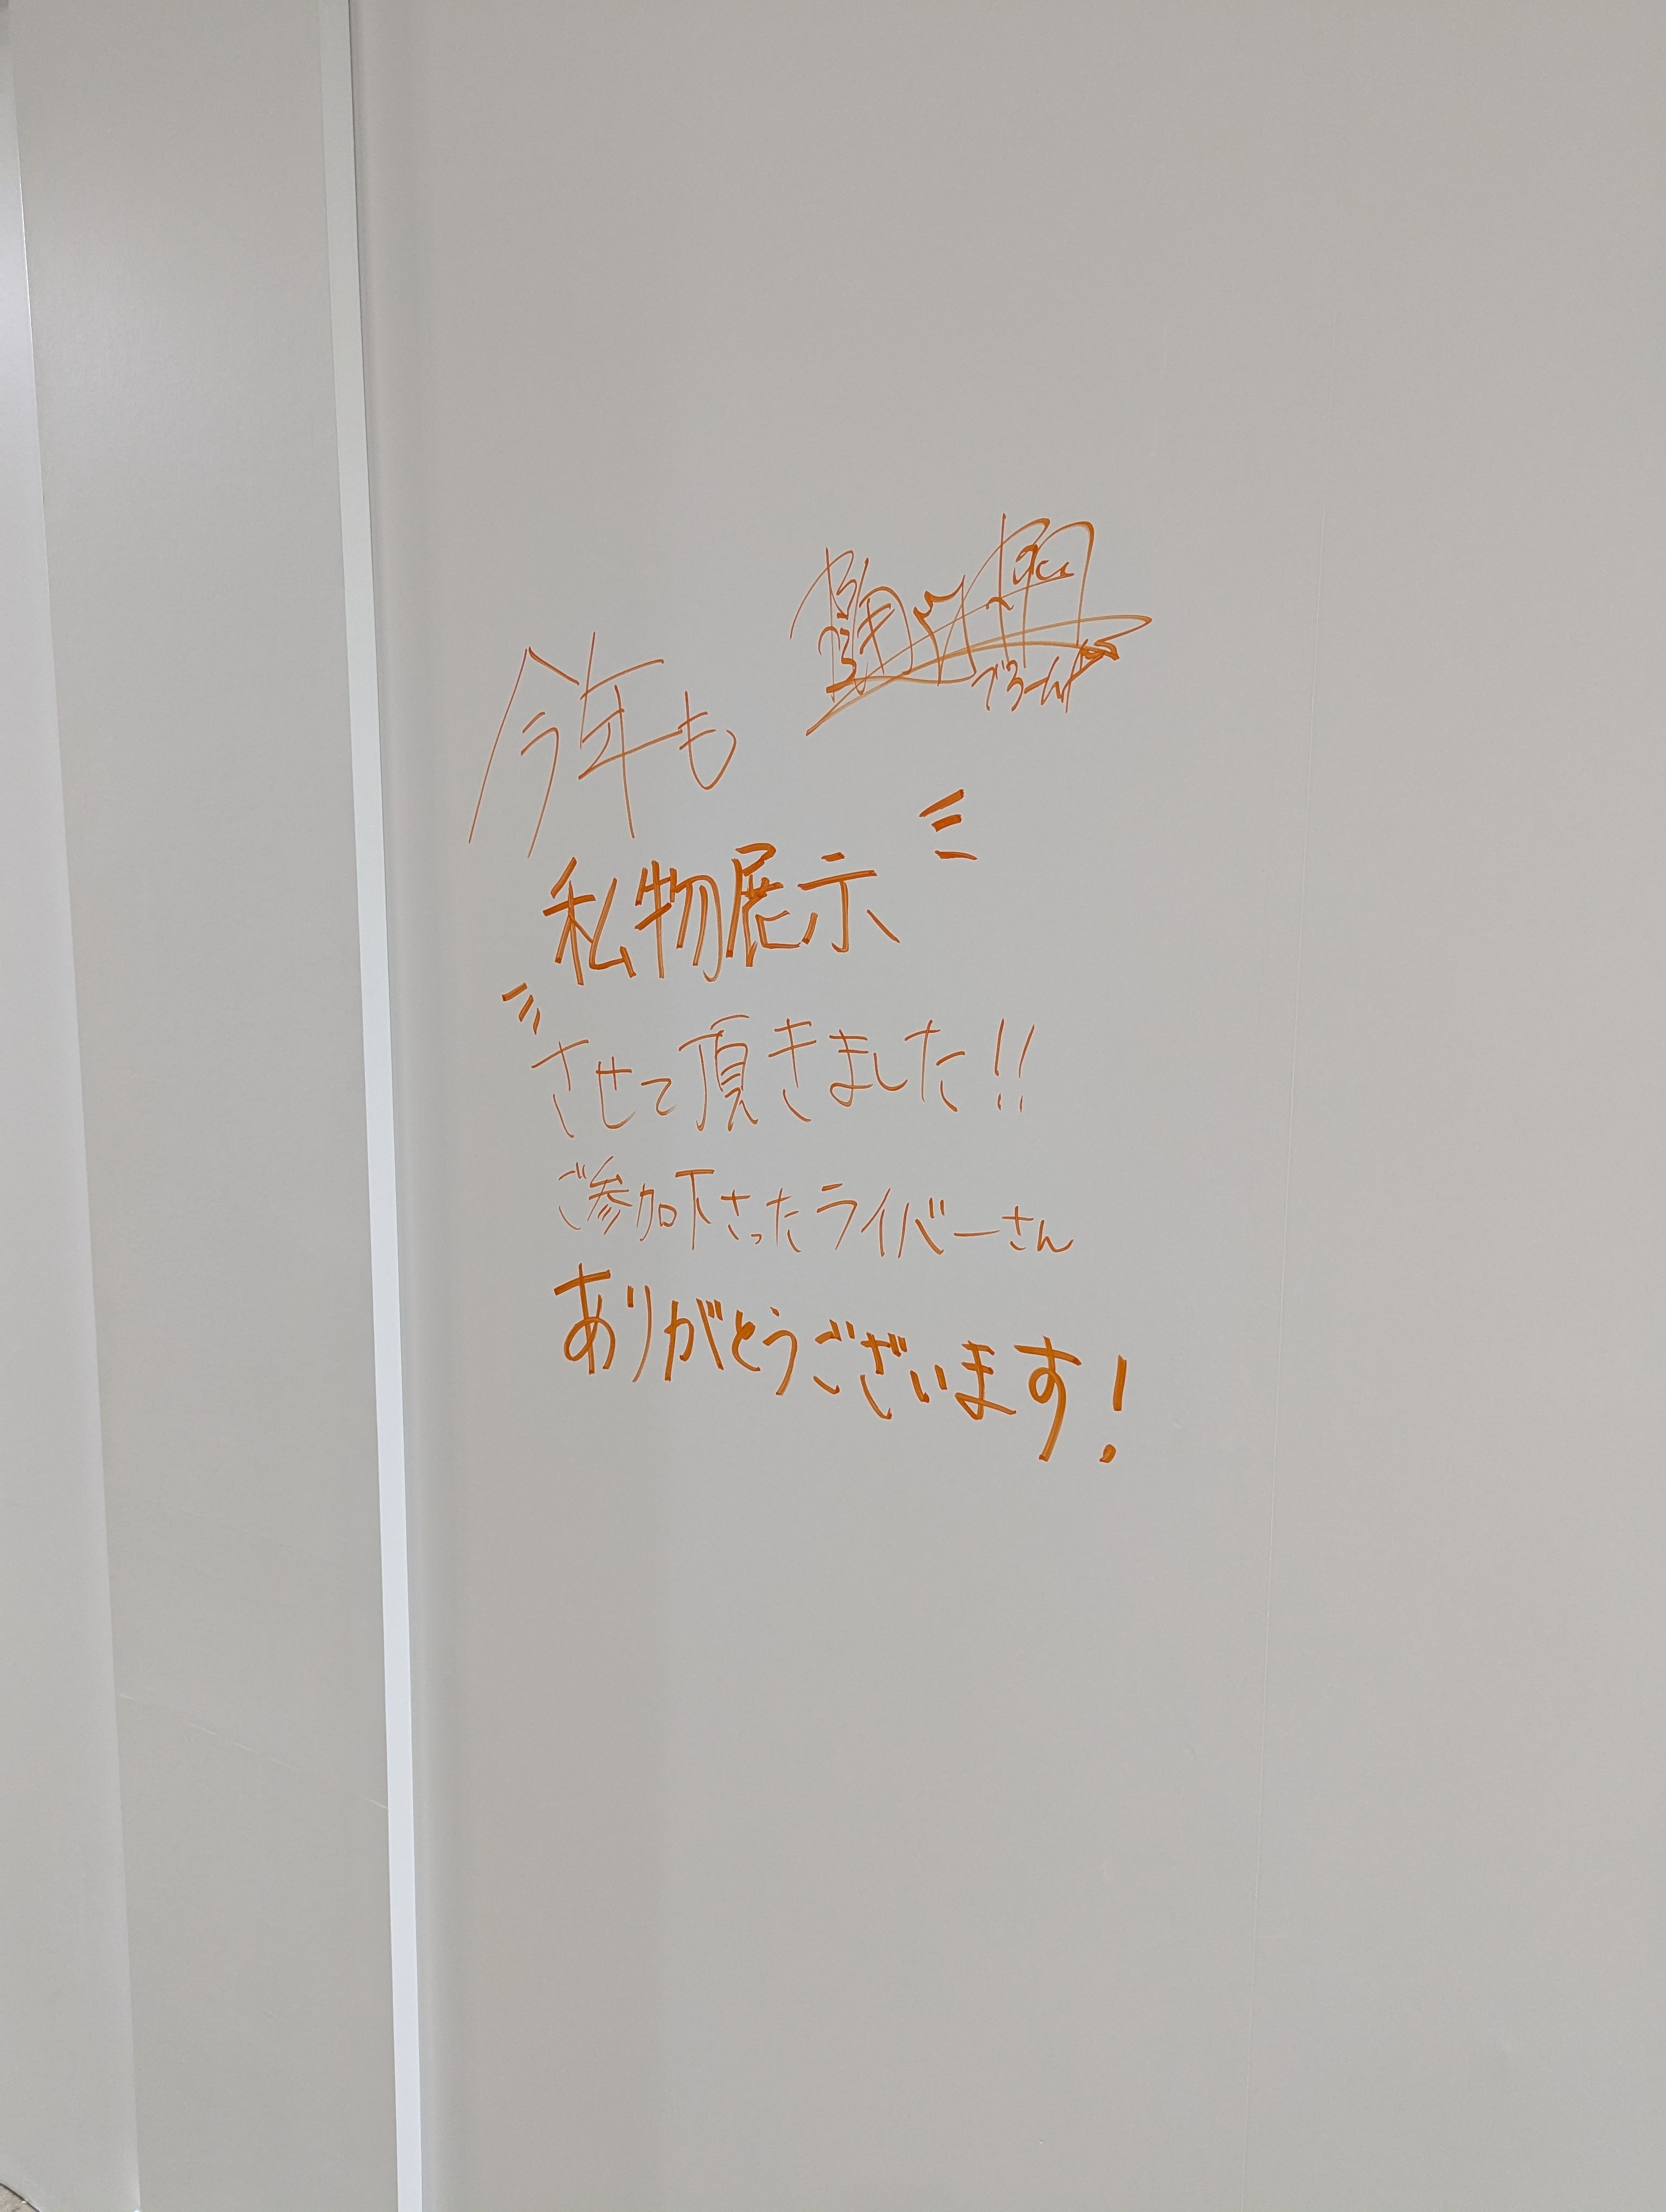 今年も
私物展示
させて頂きました!!
ご参加下さったライバーさん
ありがとうございます!